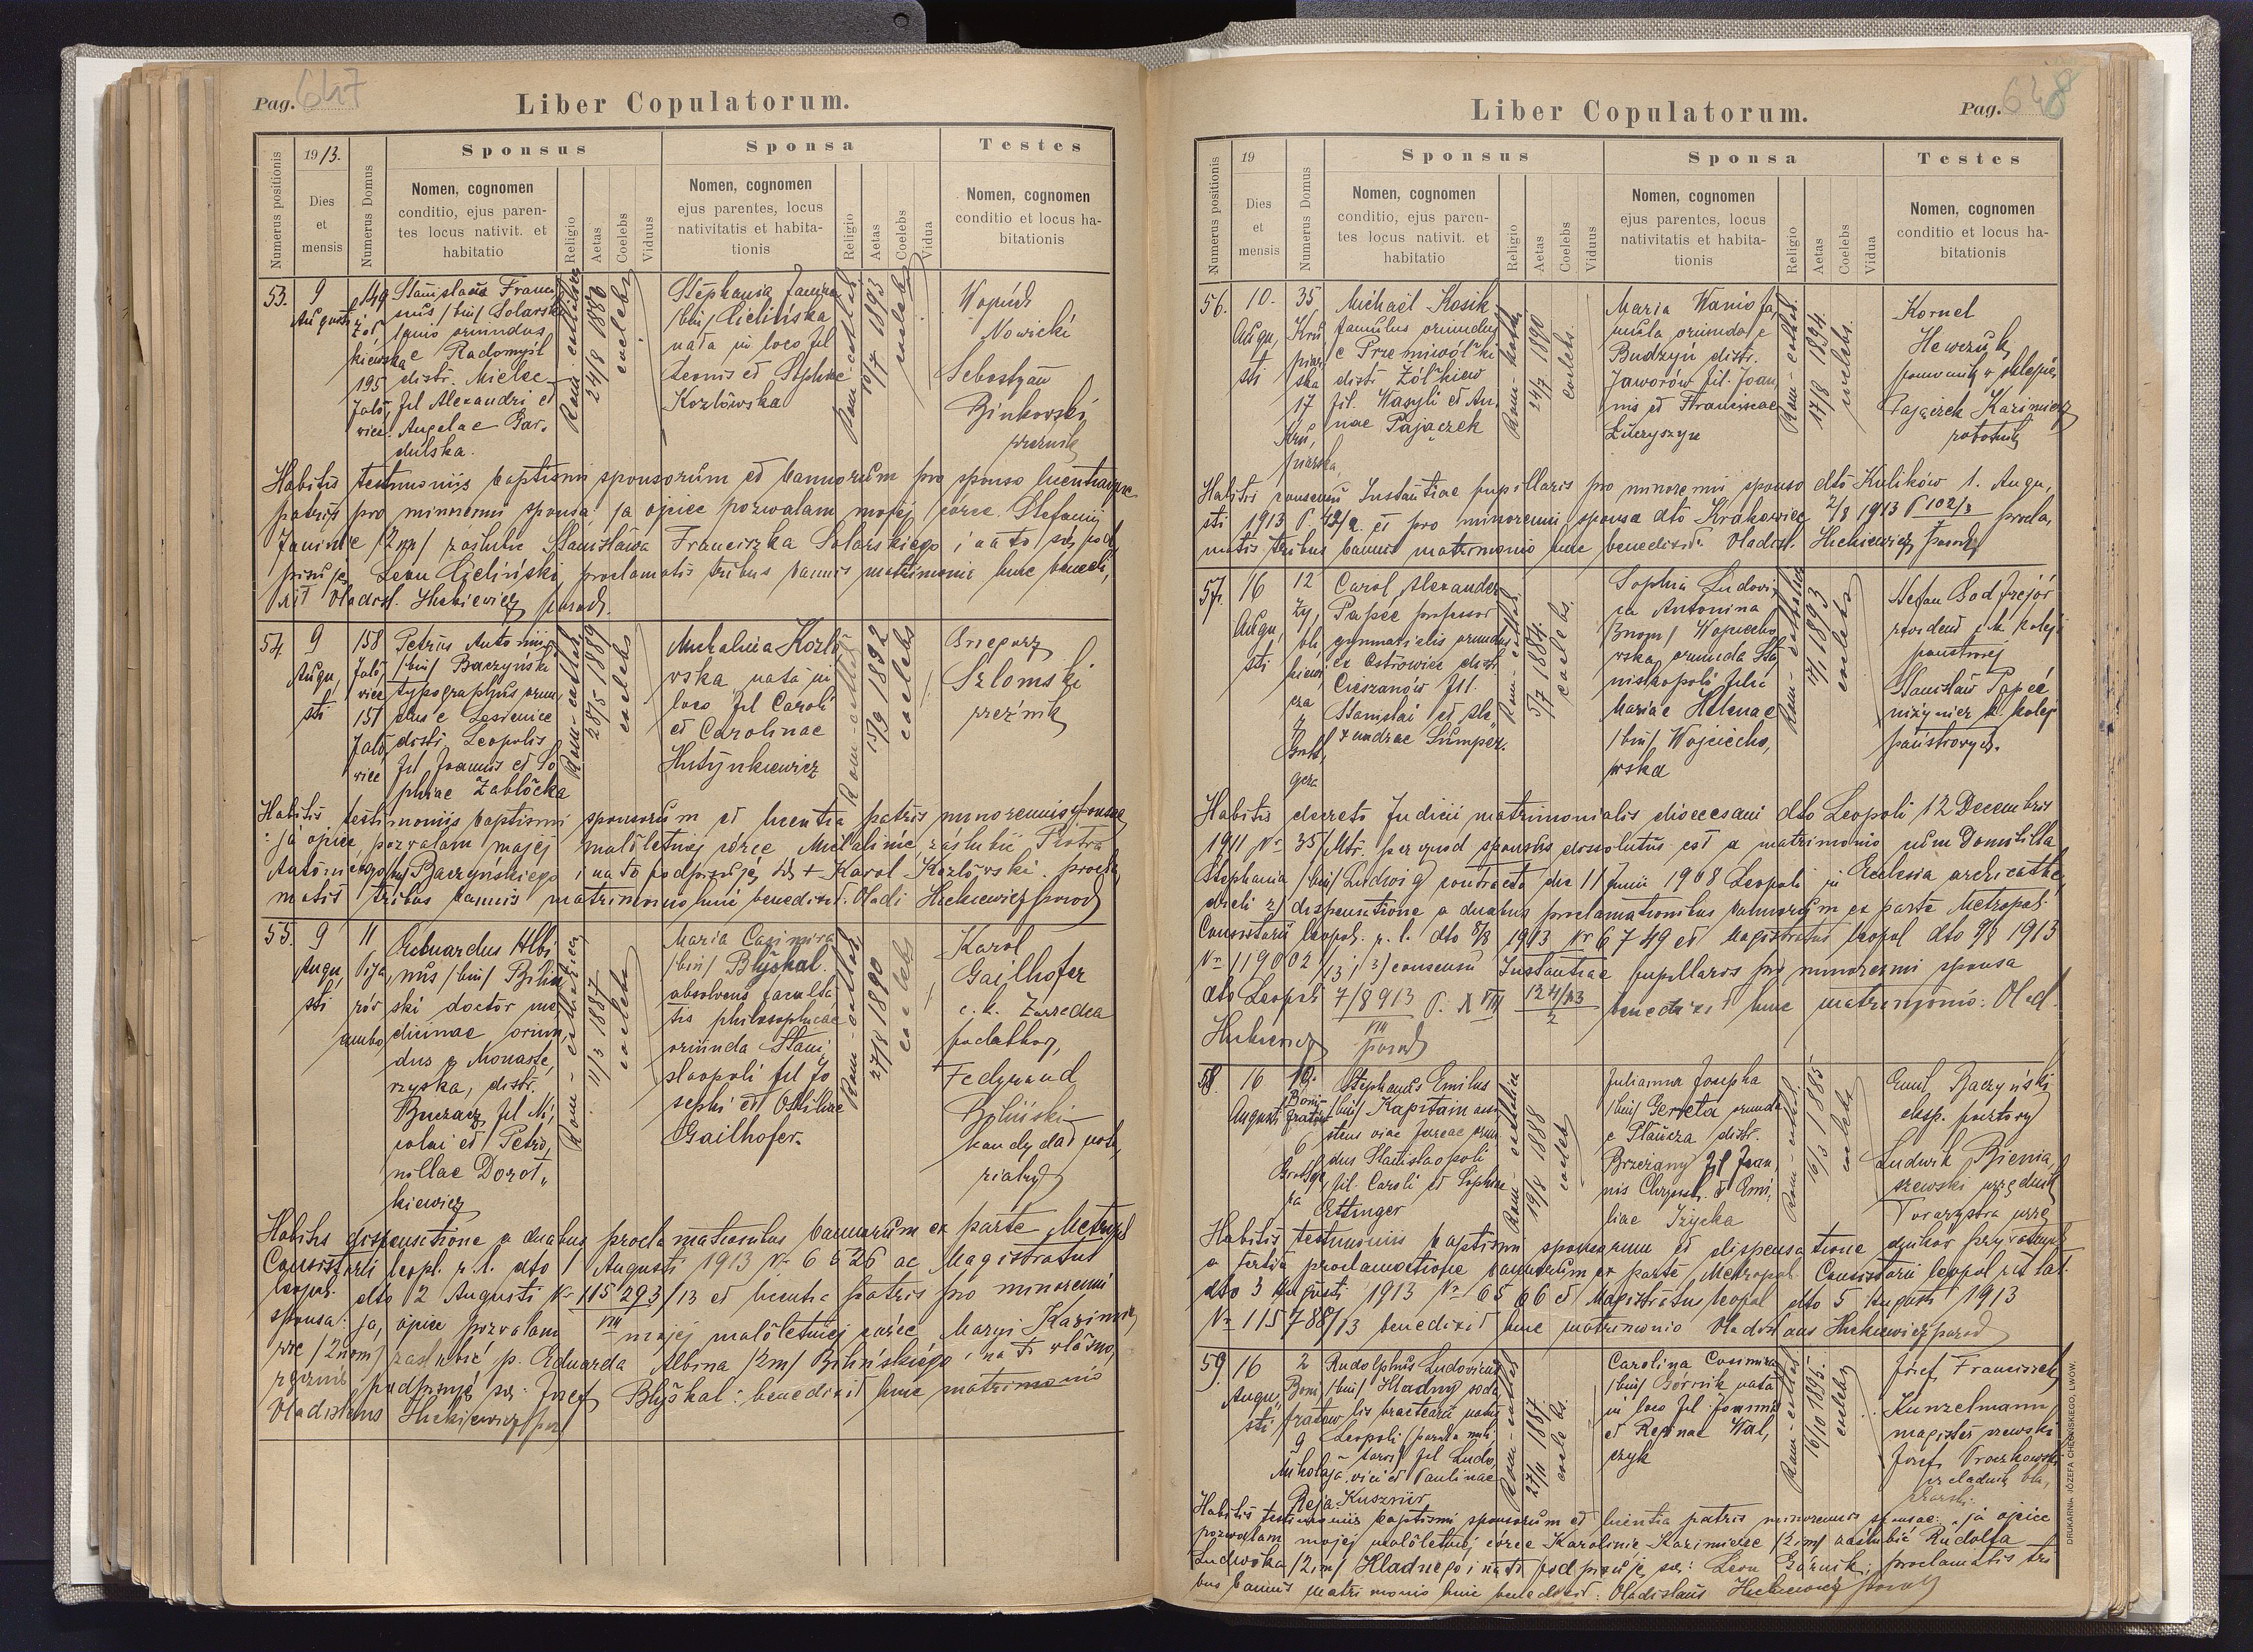 Pag. 647
Liber Copulatorum.
Numerus positionis
1913.
Dies
et
mensis
Numerus Domus
Sponsus
Nomen, cognomen
conditio, ejus paren-
tes locus nativit. et
habitatio
Religio
Aetas
Coelebs
Viduus
Sponsa
Nomen, cognomen
ejus parentes, locus
nativitatis et habita-
tionis
Religio
Aetas
Coelebs
Vidua
Testes
Nomen, cognomen
conditio et locus ha-
bitationis
53.
9
Augusti
149
195
Stanislaus Francis
/bin/ Solarski
oriundus
e Radomyśl
distr. Mielec
fil Alexandri et
Angelae Gar-
dulska.
Rom-catholica
24/8 1886
coelebs
Stephania Janina
/bin/ Cieślińska
nata in loco fil
Leonis et Sophiae
Kozłowska
Rom-cathol
1893
coelebs
Nowicki
Sebastyan
Binkowski
Habitis testimoniis baptismi sponsorum et bannorum pro sponso licentiaque
patris pro minorenni sponsa: ja ojciec pozwalam mojej córce Stefanii
Janinie /2 im/ zaślubić Stanisława Franciszka Solarskiego i na to się pod
pisuję Leon Cieliński, proclamatis tribus bannis matrimonio huic benedi,
xit Vladisl. Hickiewicz paroch.
54.
9
Augu,
sti
158
Jało,
vice
151
Jało
vice
Petrus Antonius
/bin/ Baczyński
typographus oriun,
dus e Lesienice
distr. Leopolis
fil Joannis et So
phiae Zabłocka
Rom-cathol
28/5 1889
coelebs
Michalina Kozło
wska nata in
loco fil Caroli
et Carolinae
Hutynkiewicz
Rom-cathol
15/9 1892
coelebs
Grzegorz
Szlomski
Habitis testimoniis baptismi sponsorum et licentia patris minorennis sponsae
: ja ojciec, pozwalam mojej małoletniej córce Michalinie zaślubić Piotra
Antoniego Baczyńskiego i na to podpisuję się + Karol Kozłowski. procla
matis tribus bannis matrimonio huic benedixit. Vladi Hickiewicz paroch
55.
9
Augu,
sti
11
Pija
rów
ambo
Eduardus Albi
nus /bin/ Biliń
ski doctor me
dicinae oriun,
dus e Monaste,
rzyska, distr.
Buczacz, fil Ni,
colai et Petro,
nillae Dorot,,
kiewicz
Rom-catholica
11/3 1887
coelebs
Maria Casimira
/bin/ Błyskal
absolvens faculta
tis philosophicae
oriunda Stani,
slaopoli fil Jo
sephi et Ottiliae
Gailhofer.
Rom-cathol
27/8 1890
coelebs
Karol
Gailhofer
c. k. Zarzadca
podatkowy,
Ferdynand
Biliński
kandydat nota,
rialny
Habitis dispensatione a duabus proclamationibus bannorum ex parte Metropol
Consistorii leopl. r. l. dto 1 Augusti 1913 Nr 6526 ac Magistratus
leopol. dto 2 Augusti Nr 115293/13 et licentia patris pro minorenni
VIII
sponsa: ja, ojciec pozwalam mojej małoletniej córce Maryi Kazimie,
rze /2nom/ zaślubić p. Eduarda Albina /2im/ Bilińskiego i na to własno,
ręcznie podpisuję się: Józef Błyskal: benedixit huic matrimonio
Vladislaus Hickiewicz par
Liber Copulatorum.
Pag. 648
Numerus positionis
19
Dies
et
mensis
Numerus Domus
Sponsus
Nomen, cognomen
conditio, ejus paren-
tes locus nativit. et
habitatio
Religio
Aetas
Coelebs
Viduus
Sponsa
Nomen, cognomen
ejus parentes, locus
nativitatis et habita-
tionis
Religio
Aetas
Coelebs
Vidua
Testes
Nomen, cognomen
conditio et locus ha-
bitationis
56.
10.
Augu,
sti
35
Kru,
piar,
ska
17
Kru,
piarska
Michael Kosik
famulus oriundus
e Przemiwółki
distr Żółkiew
fil. Wasyli et An,
nae Pajączek
Rom-kath
24/7 1890
coelebs.
Maria Wanio fa,
mula oriunda e
Budzyń distr.
Jaworów fil. Joan,
nis et Franciscae
Łuczyszyn
Rom-cathol.
17/8 1894.
coelebs.
Kornel
Hewczuk
pomocnik w sklepie
Pajączek Kazimierz
robotnik
Habitis consensu Instantiae pupillaris pro minorenni sponso dto Kulików 1. Augu,
sti 1913 P 42/2 et pro minorenni sponsa dto Krakowiec 2/8 1913 P 102/3 procla,
matis tribus bannis matrimonio huic benedixit. Vladisl. Hickiewicz paroch
57.
16
Augu,
sti
12
Zy,
bli
kiewi,
cza
Carol Alexander
Papée professor
gymnasialis oriundus
ex Ostrowiec distr.
Cieszanów fil.
Stanislai et Ale,
xandrae Sumper.
Rom-cathol
5/7 1884.
coelebs.
Sophia Ludovi,
ca Antonina
/3nom/ Wojciecho
wska, oriunda Sta
nislaopoli filia
Mariae Helenae
/bin/ Wojciecho,
wska
Rom-catholica
1893
coelebs
Stefan Podfrejór
rewident c. k. kolei
państwowej
Stanisław Papée
inżynier k. kolei
państwowych.
Habitis decreto Judicii matrimonialis dioecesani dto Leopoli 12 Decembris
1911 Nr 35/Mtr. per quod sponsus dissolutus est a matrimonio cum Domitilla
Stephania /bin/ Ludwig contracto die 11 Junii 1908 Leopoli in Ecclesia archicathe,
drali 2/ dispensatione a duabus proclamationibus bannorum ex parte Metropol.
Consistorii leopol. r. l. dto 8/8 1913 Nr 6749 et Magistratus leopol dto 9/8 1913
Nr 119002/13; 3/ consensu Instantiae pupillaris pro minorenni sponsa
dto Leopoli 7/8 913 P. X VIII 124/13/2 benedixit huic matrimonio: Vlad.
Hickiewicz paroch
58.
16
Augusti
10.
Boni-
fratów
6
Grottge,
ra
Stephanus Emilius
/bin/ Kapitain assi
stens viae ferreae oriun
dus Stanislaopoli
fil. Caroli et Sophiae
Ettinger
Rom-catholica
19/8 1888
coelebs
Julianna Josepha
/bin/ Gereta oriunda
e Płaucza distr.
Brzeżany fil Joan,
nis Chrysost. et Emi,
liae Irzycka
Rom-cathol.
16/3 1885
coelebs
Emil Baczyński
eksp. pocztowy
Ludwik Bienia,
szewski urzędnik
Towarzystwa urzę
dników prywatnych
Habitis testimoniis baptismi sponsorum et dispensatione
a tertia proclamatione bannorum ex parte Metropol. Consistorii leopol rit lat.
dto 3 Augusti 1913 Nr 6566 et Magistratus leopol dto 5 Augusti 1913
Nr 115788/13 benedixit huic matrimonio Vladislaus Hickiewicz paroch
59.
16
Augu,,
sti
2
Boni,
fratów
9
Mikołaja
Rudolphus Ludovicus
/bin/ Hladny soda,
lis bractearii natus
Leopoli (paroda mili
taris) fil Ludo,
vici et Paulinae
Reja-Kusznir
Rom-cathol
27/11 1887
coelebs.
Carolina Casimira
/bin/ Górnik nata
in loco fil Joannis
et Reginae Wal,
czyk
Rom-cathol
16/10 1895.
coelebs
Józef Franciszek
Kunzelmann
magister szewski
Józef
czeladnik bla,
charski.
Habitis testimoniis baptismi sponsorum et licentia patris minorennis sponsae: „ja ojciec
pozwalam mojej małoletniej córce Karolinie Kazimierze /2im/ zaślubić Rudolfa
Ludwika /2im/ Hladnego i na to podpisuję się: Leon Górnik; proclamatis tri
bus bannis matrimonio huic benedixit: Vladislaus Hickiewicz paroch
DRUKARNIA JÓZEFA CHĘCIŃSKIEGO, LWÓW.